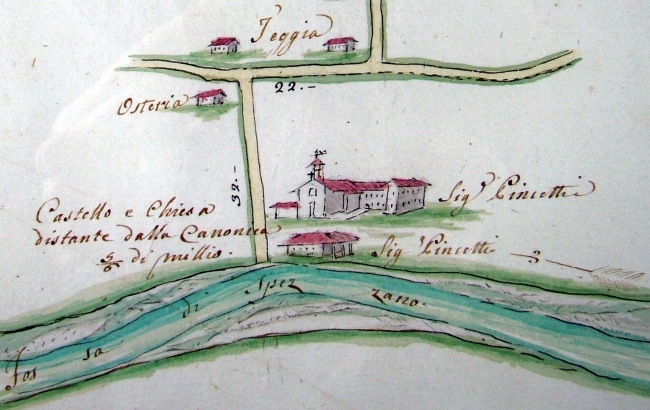 Teggia
Osteria
22.-
32.-
Castello e Chiesa
distante dalla Canonica
5/6 di millio.
Sig.r Pincetti
Sig.r Pincetti
Fossa di Spezzano.